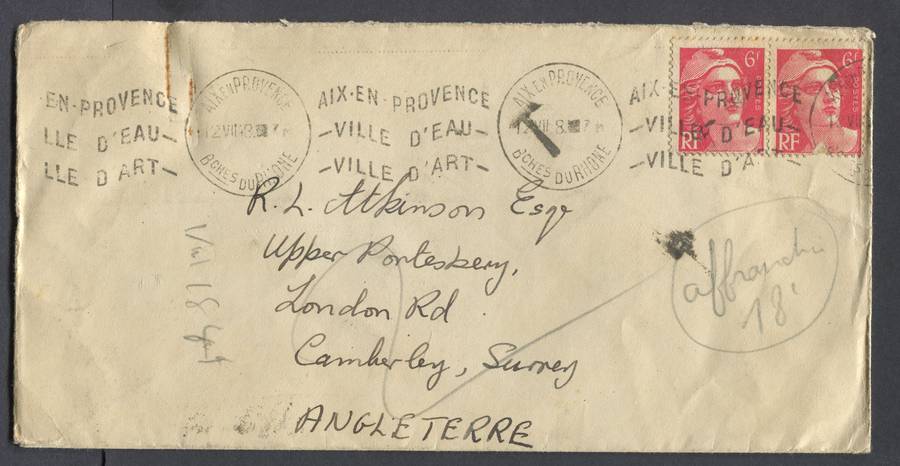 6f 6f
RF RF
EN-PROVENCE
LLE D'EAU-
LLE D'ART-
AIX-EN-PROVENCE
BCHES DU RHONE
AIX-EN-PROVENCE
-VILLE D'EAU-
-VILLE D'ART-
AIX-EN-PROVENCE
BCHES DU RHONE
T
AIX-EN-PROVENCE
-VILLE D'EAU-
-VILLE D'A
R. L. Atkinson Esqr
Upper Portesbery,
London Rd
Camberley, Surrey
ANGLETERRE
affranchie
18'